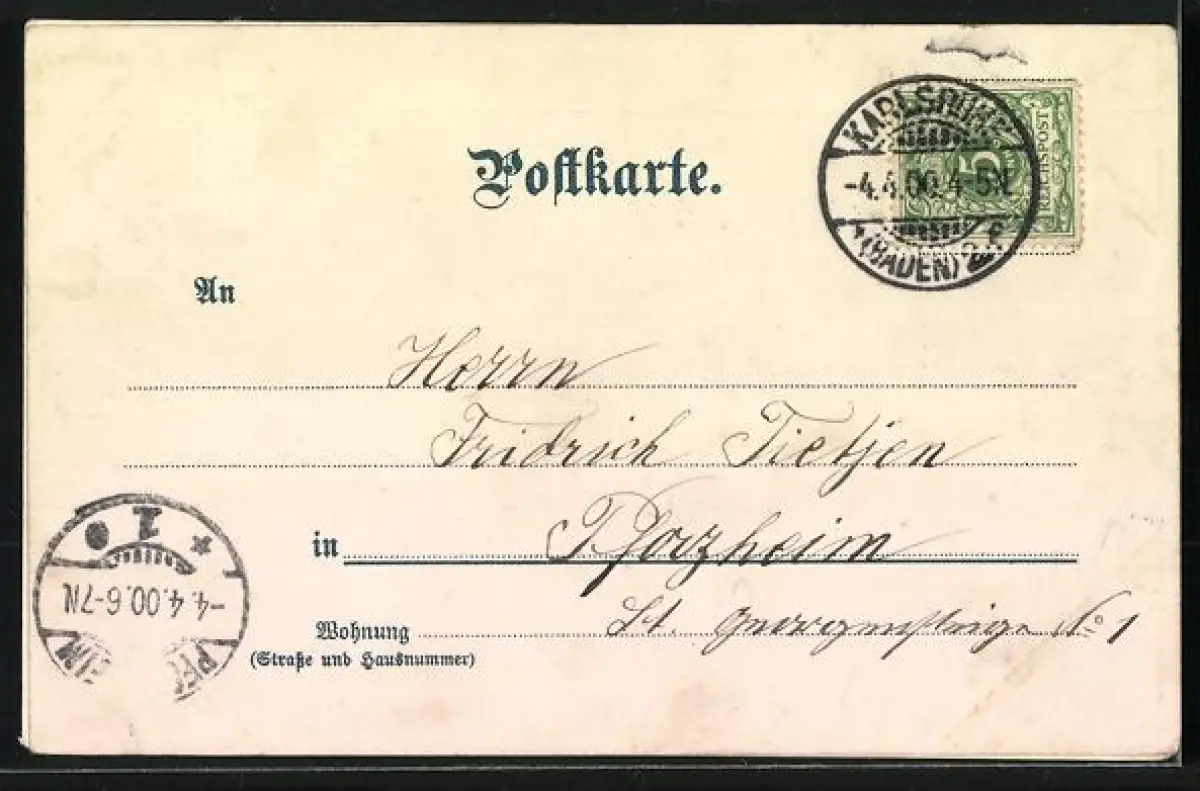 Postkarte.
KARLSRUHE
-4.4.00.4-5N.
(BADEN) 2.f
5
REICHSPOST
An
Herrn
Fridrich Tietjen
in Pforzheim
Wohnung St. No 1
(Straße und Hausnummer)
1
-4.4.00.6-7N